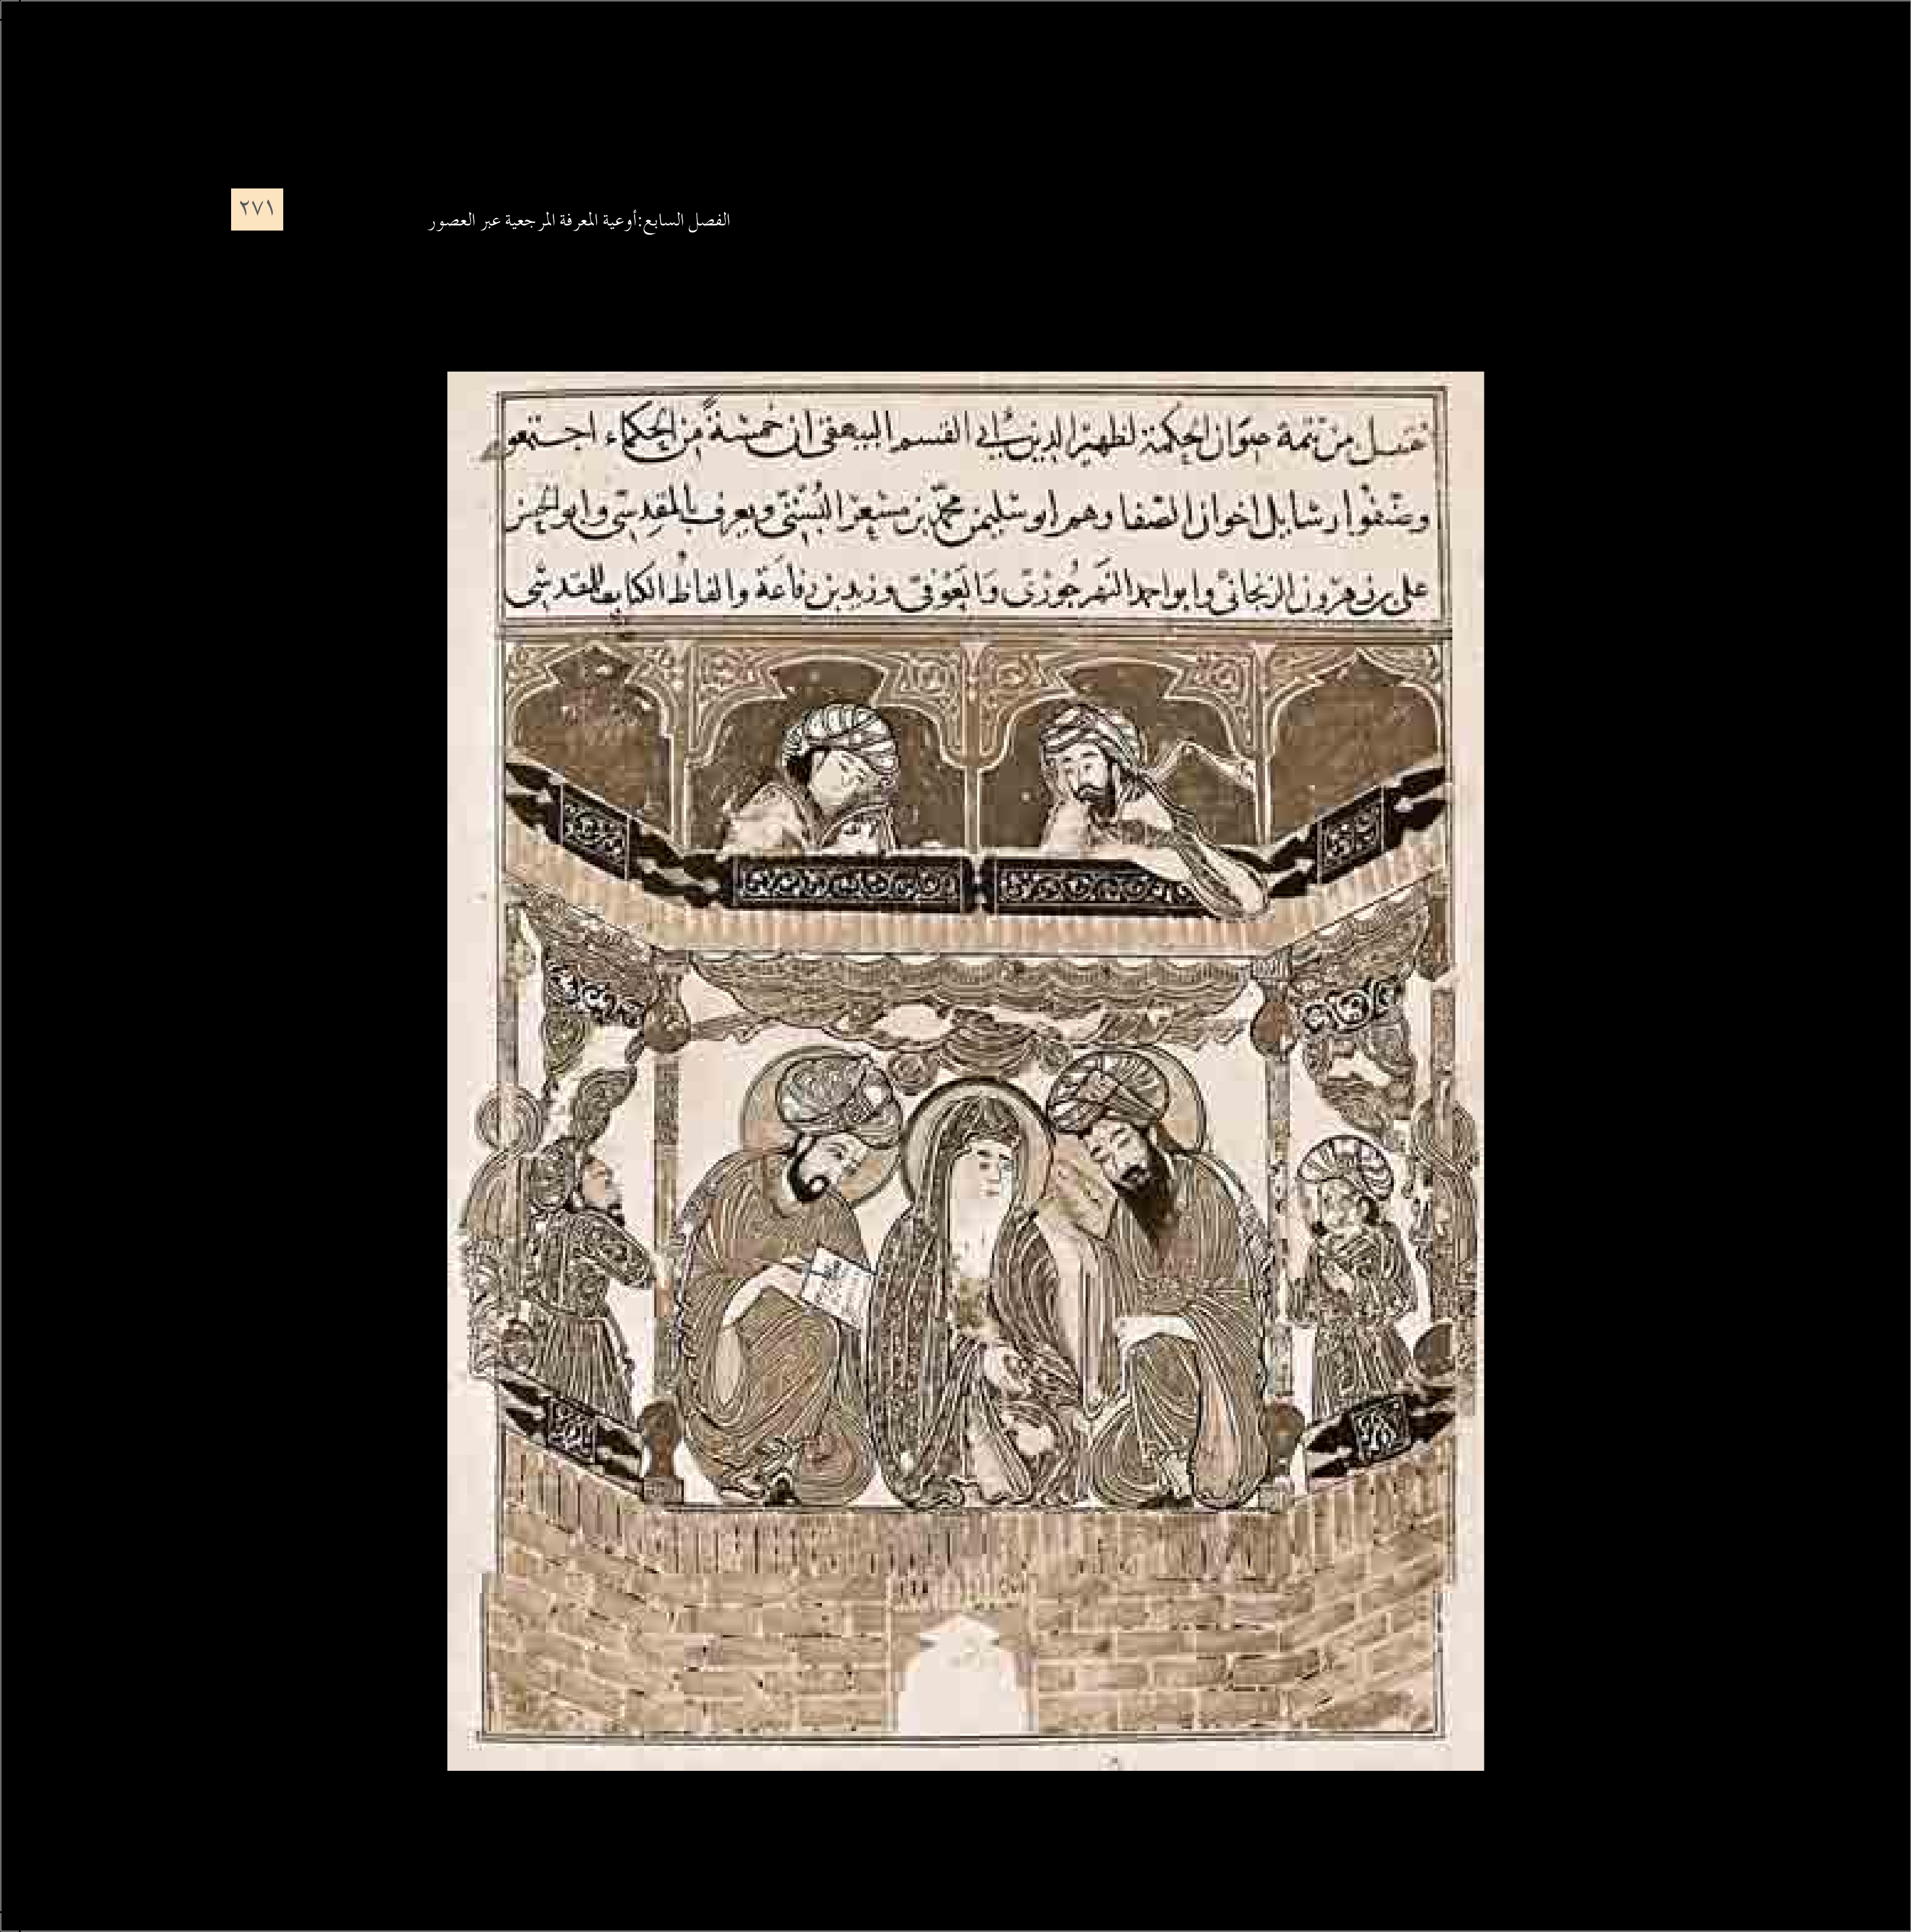 ٢٧١
الفصل السابع:أوعية المعرفة المرجعية عبر العصور
من تتمة صوان الحكمة لظهير الدين ابي القسم البيهقي ان خمسة من الحكماء اجتمعو
وصنفوا رسايل اخوان الصفا وهم ابو سليمن محمد بن مسعر البستي ويعرف بالمقدسي وابو الحسن
على بن هرون الزنجاني وابو احمد النهرجوري والعوفي وزيد بن رفاعة والفاظ الكتاب للمقدسي